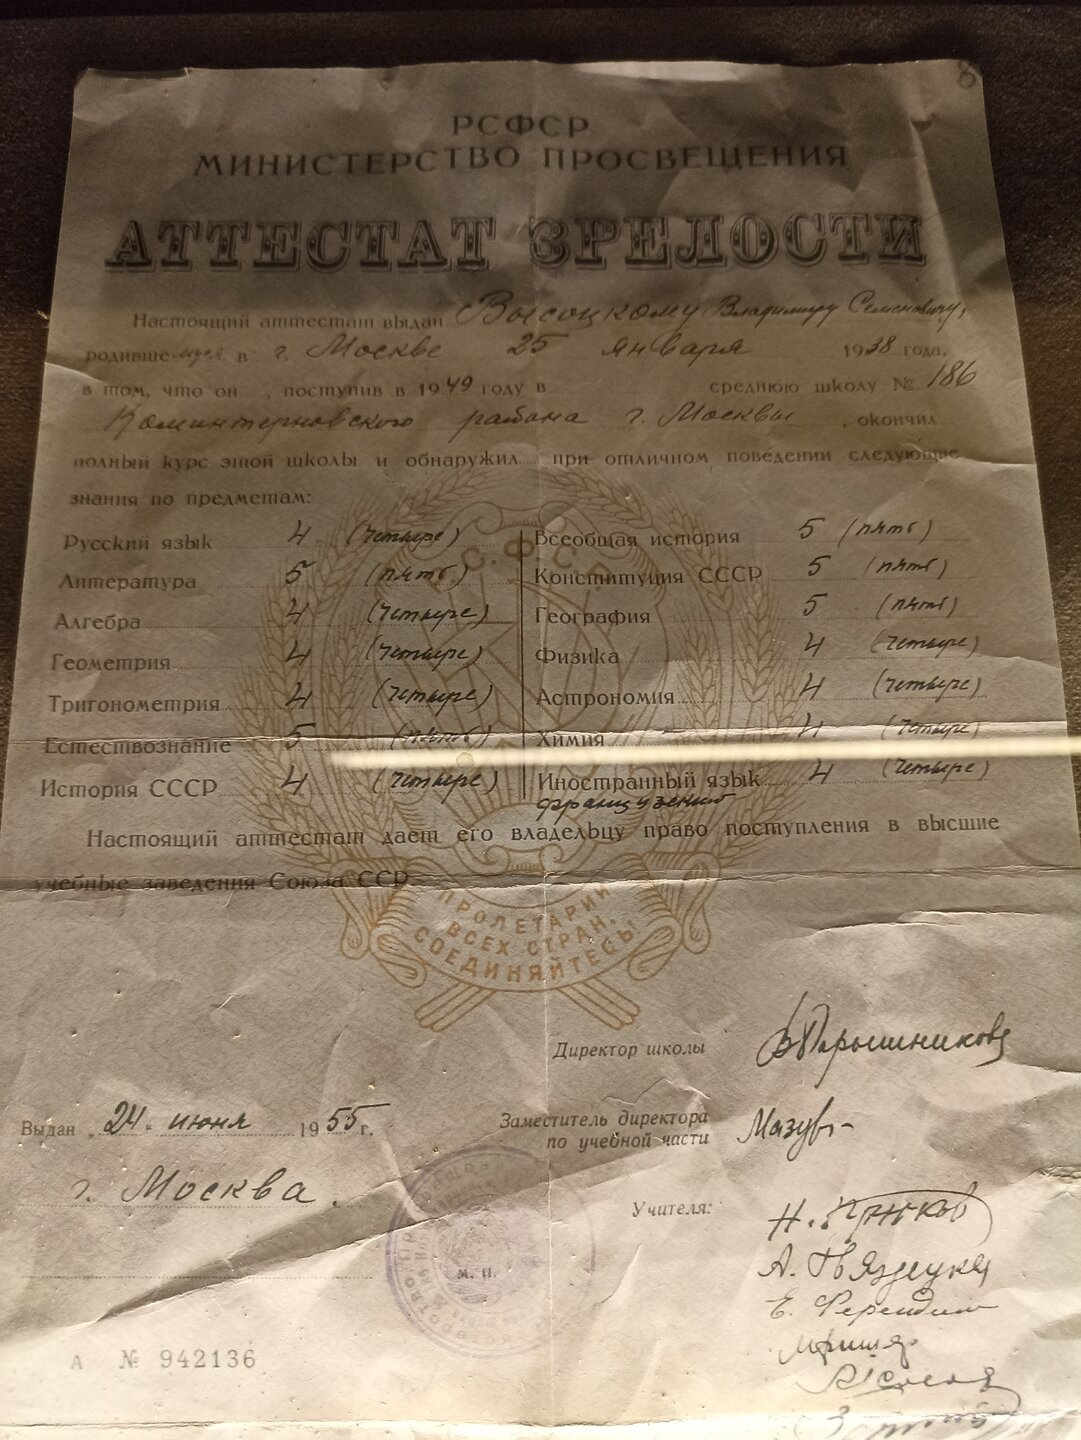 РСФСР
МИНИСТЕРСТВО ПРОСВЕЩЕНИЯ
АТТЕСТАТ ЗРЕЛОСТИ
Настоящий аттестат выдан Высоцкому Владимиру Семеновичу,
родившемуся в г. Москве 25 января 1938 года,
в том, что он, поступив в 1949 году в среднюю школу № 186
Коминтерновского района г. Москвы, окончил
полный курс этой школы и обнаружил при отличном поведении следующие
знания по предметам:
Русский язык 4 (четыре)
Литература 5 (пять)
Алгебра 4 (четыре)
Геометрия 4 (четыре)
Тригонометрия 4 (четыре)
Естествознание 5 (пять)
История СССР 4 (четыре)
Всеобщая история 5 (пять)
Конституция СССР 5 (пять)
География 5 (пять)
Физика 4 (четыре)
Астрономия 4 (четыре)
Химия 4 (четыре)
Иностранный язык 4 (четыре)
французский
Настоящий аттестат дает его владельцу право поступления в высшие
учебные заведения Союза ССР
Р.С.Ф.С.Р.
ПРОЛЕТАРИИ
ВСЕХ СТРАН,
СОЕДИНЯЙТЕСЬ!
Директор школы
Выдан 24 июня 1955 г.
Заместитель директора
по учебной части
г. Москва.
Учителя:
М. П.
А № 942136